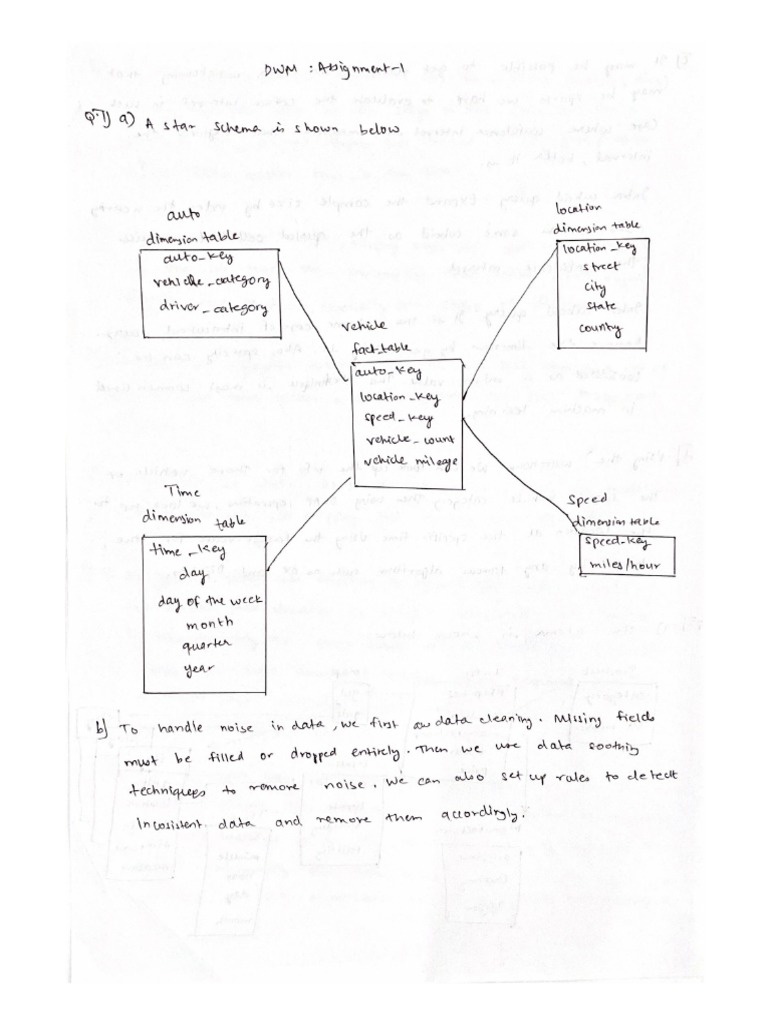 DWM : Assignment-1
Q.1) a) A star schema is shown below
auto
dimension table
auto_key
vehicle_category
driver_category
location
dimension table
location_key
street
city
state
county
vehicle
fact_table
auto_key
location_key
speed_key
vehicle_count
vehicle mileage
Time
dimension table
time_key
day
day of the week
month
quarter
year
Speed
dimension table
speed_key
miles/hour
b) To handle noise in data, we first data cleaning. Missing fields
must be filled or dropped entirely. Then we use data soothing
techniques to remove noise. We can also set up rules to detect
incosistent data and remove them accordingly.